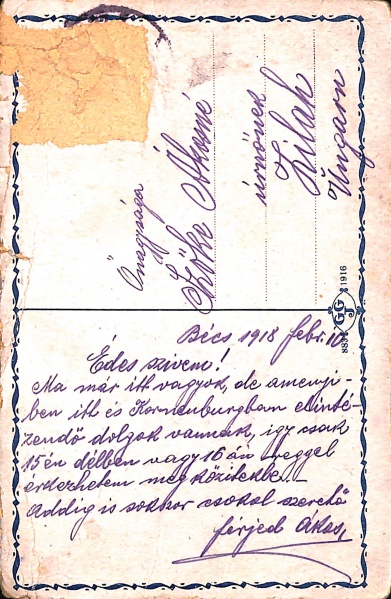 Őnagysága
Szőke Ákosné
úrnőnek
Zilah
Ungarn
GG
J
1916
Bécs 1918 febr. 10
Édes szivem!
Ma már itt vagyok, de amenyi-
ben itt és Korneuburgban elinté-
zendő dolgok vannak, igy csak
15 én délben vagy 16 án reggel
érkezhetem meg közitekbe. -
Addig is sokszor csokol szerető
férjed Ákos,